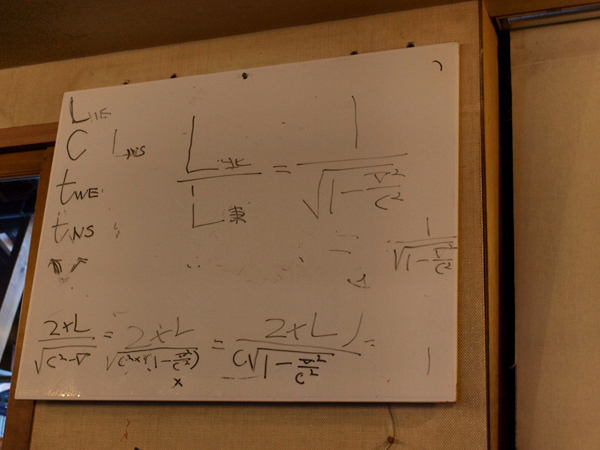 L
C L
tWE
tNS
L北 / L東 = 1 / √(1 - v²/c²)
1 / √(1 - v²/c²)
2×L / √(c²-v) = 2×L / √(c²×(1 - v²/c²)) = 2×L / C√(1 - v²/c²) =